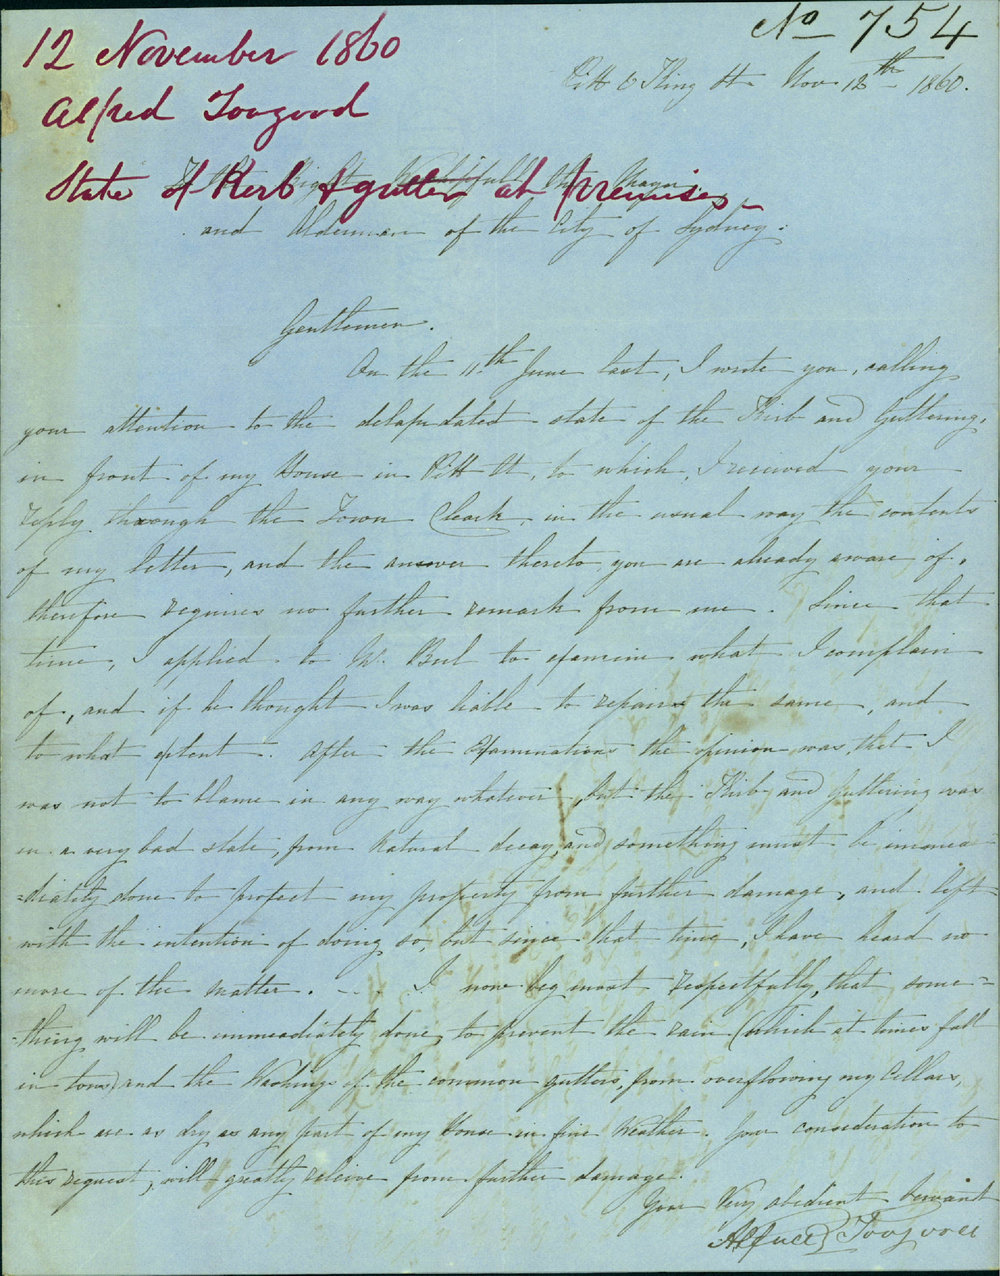 No 754
12 November 1860
Alfred Toogood
State of Kerb & gutter at premises
Pitt & King St Nov 12th 1860.
To the Right Worshipfull the Mayor
and Aldermen of the City of Sydney.
Gentlemen.
On the 11th June last, I wrote you, calling
your attention to the delapidated state of the Kirb and Guttering,
in front of my House in Pitt St, to which, I received your
reply through the Town Clerk, in the usual way the contents
of my letter, and the answer thereto you are already aware of,
therefore requires no further remark from me. Since that
time, I applied to W. Bell to examine what I complain
of, and if he thought I was liable to repair the same, and
to what extent. After the Examinations the opinion was, that I
was not to blame in any way whatever, but the Kirb and Guttering was
in a very bad state, from Natural decay, and something must be immea-
=diately done to protect my property from further damage, and left
with the intention of doing so, but since that time, I have heard no
more of the matter. I now beg most respectfully, that some=
=thing will be immeadiately done, to prevent the rain (which at times fall
in tons) and the Washings of the common gutters, from overflowing my Cellars,
which are as dry as any part of my House in fine Weather. Your consideration to
this request, will greatly releive from further damage.
Your Very obedient Servant
Alfred Toogood